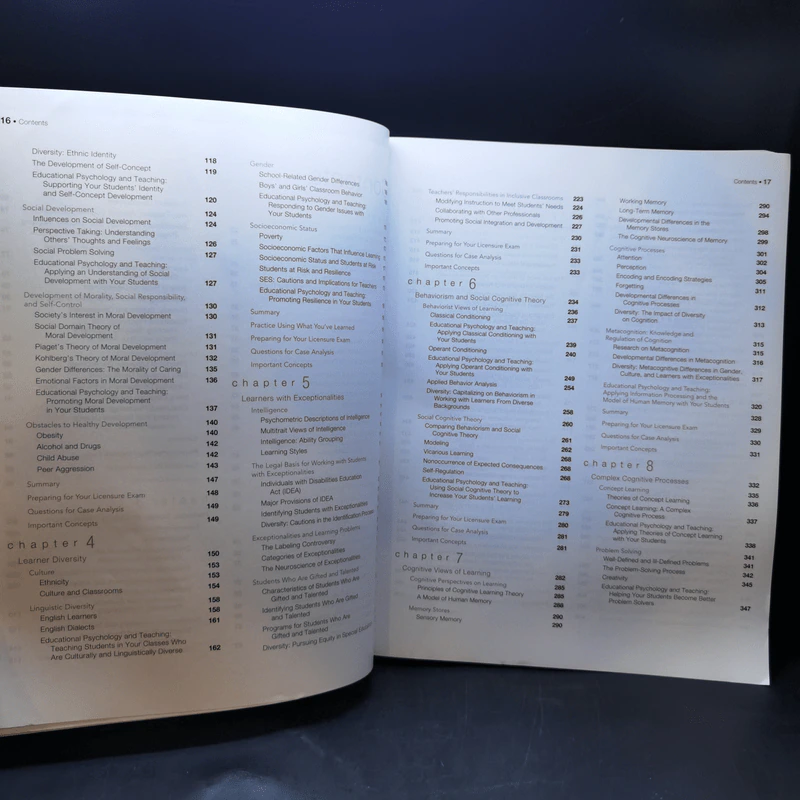 16 • Contents
Diversity: Ethnic Identity 118
The Development of Self-Concept 119
Educational Psychology and Teaching:
Supporting Your Students' Identity
and Self-Concept Development 120
Social Development 124
Influences on Social Development 124
Perspective Taking: Understanding
Others' Thoughts and Feelings 126
Social Problem Solving 127
Educational Psychology and Teaching:
Applying an Understanding of Social
Development with Your Students 127
Development of Morality, Social Responsibility,
and Self-Control 130
Society's Interest in Moral Development 130
Social Domain Theory of
Moral Development 131
Piaget's Theory of Moral Development 131
Kohlberg's Theory of Moral Development 132
Gender Differences: The Morality of Caring 135
Emotional Factors in Moral Development 136
Educational Psychology and Teaching:
Promoting Moral Development
in Your Students 137
Obstacles to Healthy Development 140
Obesity 140
Alcohol and Drugs 142
Child Abuse 142
Peer Aggression 143
Summary 147
Preparing for Your Licensure Exam 148
Questions for Case Analysis 149
Important Concepts 149
chapter 4
Learner Diversity 150
Culture 153
Ethnicity 153
Culture and Classrooms 154
Linguistic Diversity 158
English Learners 158
English Dialects 161
Educational Psychology and Teaching:
Teaching Students in Your Classes Who
Are Culturally and Linguistically Diverse 162
Gender
School-Related Gender Differences
Boys' and Girls' Classroom Behavior
Educational Psychology and Teaching:
Responding to Gender Issues with
Your Students
Socioeconomic Status
Poverty
Socioeconomic Factors That Influence Learning
Socioeconomic Status and Students at Risk
Students at Risk and Resilience
SES: Cautions and Implications for Teachers
Educational Psychology and Teaching:
Promoting Resilience in Your Students
Summary
Practice Using What You've Learned
Preparing for Your Licensure Exam
Questions for Case Analysis
Important Concepts
chapter 5
Learners with Exceptionalities
Intelligence
Psychometric Descriptions of Intelligence
Multitrait Views of Intelligence
Intelligence: Ability Grouping
Learning Styles
The Legal Basis for Working with Students
with Exceptionalities
Individuals with Disabilities Education
Act (IDEA)
Major Provisions of IDEA
Identifying Students with Exceptionalities
Diversity: Cautions in the Identification Process
Exceptionalities and Learning Problems
The Labeling Controversy
Categories of Exceptionalities
The Neuroscience of Exceptionalities
Students Who Are Gifted and Talented
Characteristics of Students Who Are
Gifted and Talented
Identifying Students Who Are Gifted
and Talented
Programs for Students Who Are
Gifted and Talented
Diversity: Pursuing Equity in Special Education
Contents • 17
Teachers' Responsibilities in Inclusive Classrooms 223
Modifying Instruction to Meet Students' Needs 224
Collaborating with Other Professionals 226
Promoting Social Integration and Development 227
Summary 230
Preparing for Your Licensure Exam 231
Questions for Case Analysis 233
Important Concepts 233
chapter 6
Behaviorism and Social Cognitive Theory 234
Behaviorist Views of Learning 236
Classical Conditioning 237
Educational Psychology and Teaching:
Applying Classical Conditioning with
Your Students 239
Operant Conditioning 240
Educational Psychology and Teaching:
Applying Operant Conditioning with
Your Students 249
Applied Behavior Analysis 254
Diversity: Capitalizing on Behaviorism in
Working with Learners From Diverse
Backgrounds 258
Social Cognitive Theory 260
Comparing Behaviorism and Social
Cognitive Theory 261
Modeling 262
Vicarious Learning 268
Nonoccurrence of Expected Consequences 268
Self-Regulation 268
Educational Psychology and Teaching:
Using Social Cognitive Theory to
Increase Your Students' Learning 273
Summary 279
Preparing for Your Licensure Exam 280
Questions for Case Analysis 281
Important Concepts 281
chapter 7
Cognitive Views of Learning 282
Cognitive Perspectives on Learning 285
Principles of Cognitive Learning Theory 285
A Model of Human Memory 288
Memory Stores 290
Sensory Memory 290
Working Memory 290
Long-Term Memory 294
Developmental Differences in the
Memory Stores 298
The Cognitive Neuroscience of Memory 299
Cognitive Processes 301
Attention 302
Perception 304
Encoding and Encoding Strategies 305
Forgetting 311
Developmental Differences in
Cognitive Processes 312
Diversity: The Impact of Diversity
on Cognition 313
Metacognition: Knowledge and
Regulation of Cognition 315
Research on Metacognition 315
Developmental Differences in Metacognition 316
Diversity: Metacognitive Differences in Gender,
Culture, and Learners with Exceptionalities 317
Educational Psychology and Teaching:
Applying Information Processing and the
Model of Human Memory with Your Students 320
Summary 328
Preparing for Your Licensure Exam 329
Questions for Case Analysis 330
Important Concepts 331
chapter 8
Complex Cognitive Processes 332
Concept Learning 335
Theories of Concept Learning 336
Concept Learning: A Complex
Cognitive Process 337
Educational Psychology and Teaching:
Applying Theories of Concept Learning
with Your Students 338
Problem Solving 341
Well-Defined and Ill-Defined Problems 341
The Problem-Solving Process 342
Creativity 345
Educational Psychology and Teaching:
Helping Your Students Become Better
Problem Solvers 347